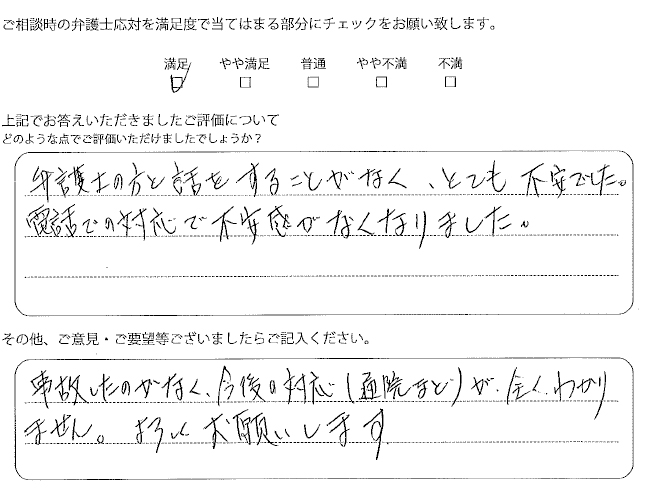 ご相談時の弁護士応対を満足度で当てはまる部分にチェックをお願い致します。
満足 やや満足 普通 やや不満 不満
上記でお答えいただきましたご評価について
どのような点でご評価いただけましたでしょうか？
弁護士の方と話をすることがなく、とても不安でした。
電話での対応で不安感がなくなりました。
その他、ご意見・ご要望等ございましたらご記入ください。
事故したのがなく、今後の対応(通院など)が、全くわかり
ません。よろしくお願いします